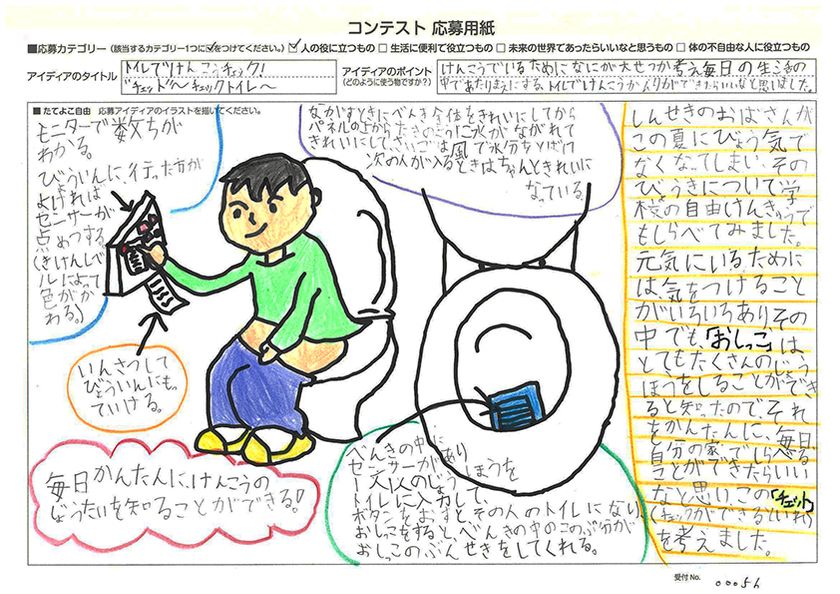 コンテスト 応募用紙
■応募カテゴリー (該当するカテゴリー1つに☑をつけてください。) ☑ 人の役に立つもの □ 生活に便利で役立つもの □ 未来の世界であったらいいなと思うもの □ 体の不自由な人に役立つもの
アイディアのタイトル
トイレでけんこうチェック!
アイディアのポイント
(どのように使う物ですか?)
けんこうでいるためになにが大せつか考え毎日の生活の
中であたりまえにする、トイレでけんこうか
できたらいいなと思いました。
■たてよこ自由 応募アイディアのイラストを描いてください。
モニターで数ちが
わかる。
びょういんに、行った方が
よければ
センサーが
点めつする
(きけんレベ
ルによって
色がか
わる。)
いんさつして
びょういんにもっ
ていける。
毎日かんたんに、けんこうの
じょうたいを知ることができる!
ながすときにべんき全体をきれいにしてから
パネルの上からたきのように水がながれて
きれいにして、さいごは風で水分をとばけ
次の人が入るときはちゃんときれいに
なっている。
べんきの中に
センサーがあり
1人1人のじょうほうを
トイレに入力して、
ボタンをおすとその人のトイレになり
おしっこをすると、べんきの中のこのぶ分が
おしっこのぶんせきをしてくれる。
しんせきのおばさんが
この夏にびょう気で
なくなってしまい、その
びょうきについて、学
校の自由けんきゅうで
もしらべてみました。
元気にいるために
は、気をつけること
がいろいろありその
中でも、「おしっこ」は
とてもたくさんのじょう
ほうをしることができ
ると知ったので、それ
をかんたんに、毎日、
自分の家でしらべる
ことができたらいい
なと思い、この「チェット」
(チェックができるといれ)
を考えました。
受付 No. 00056